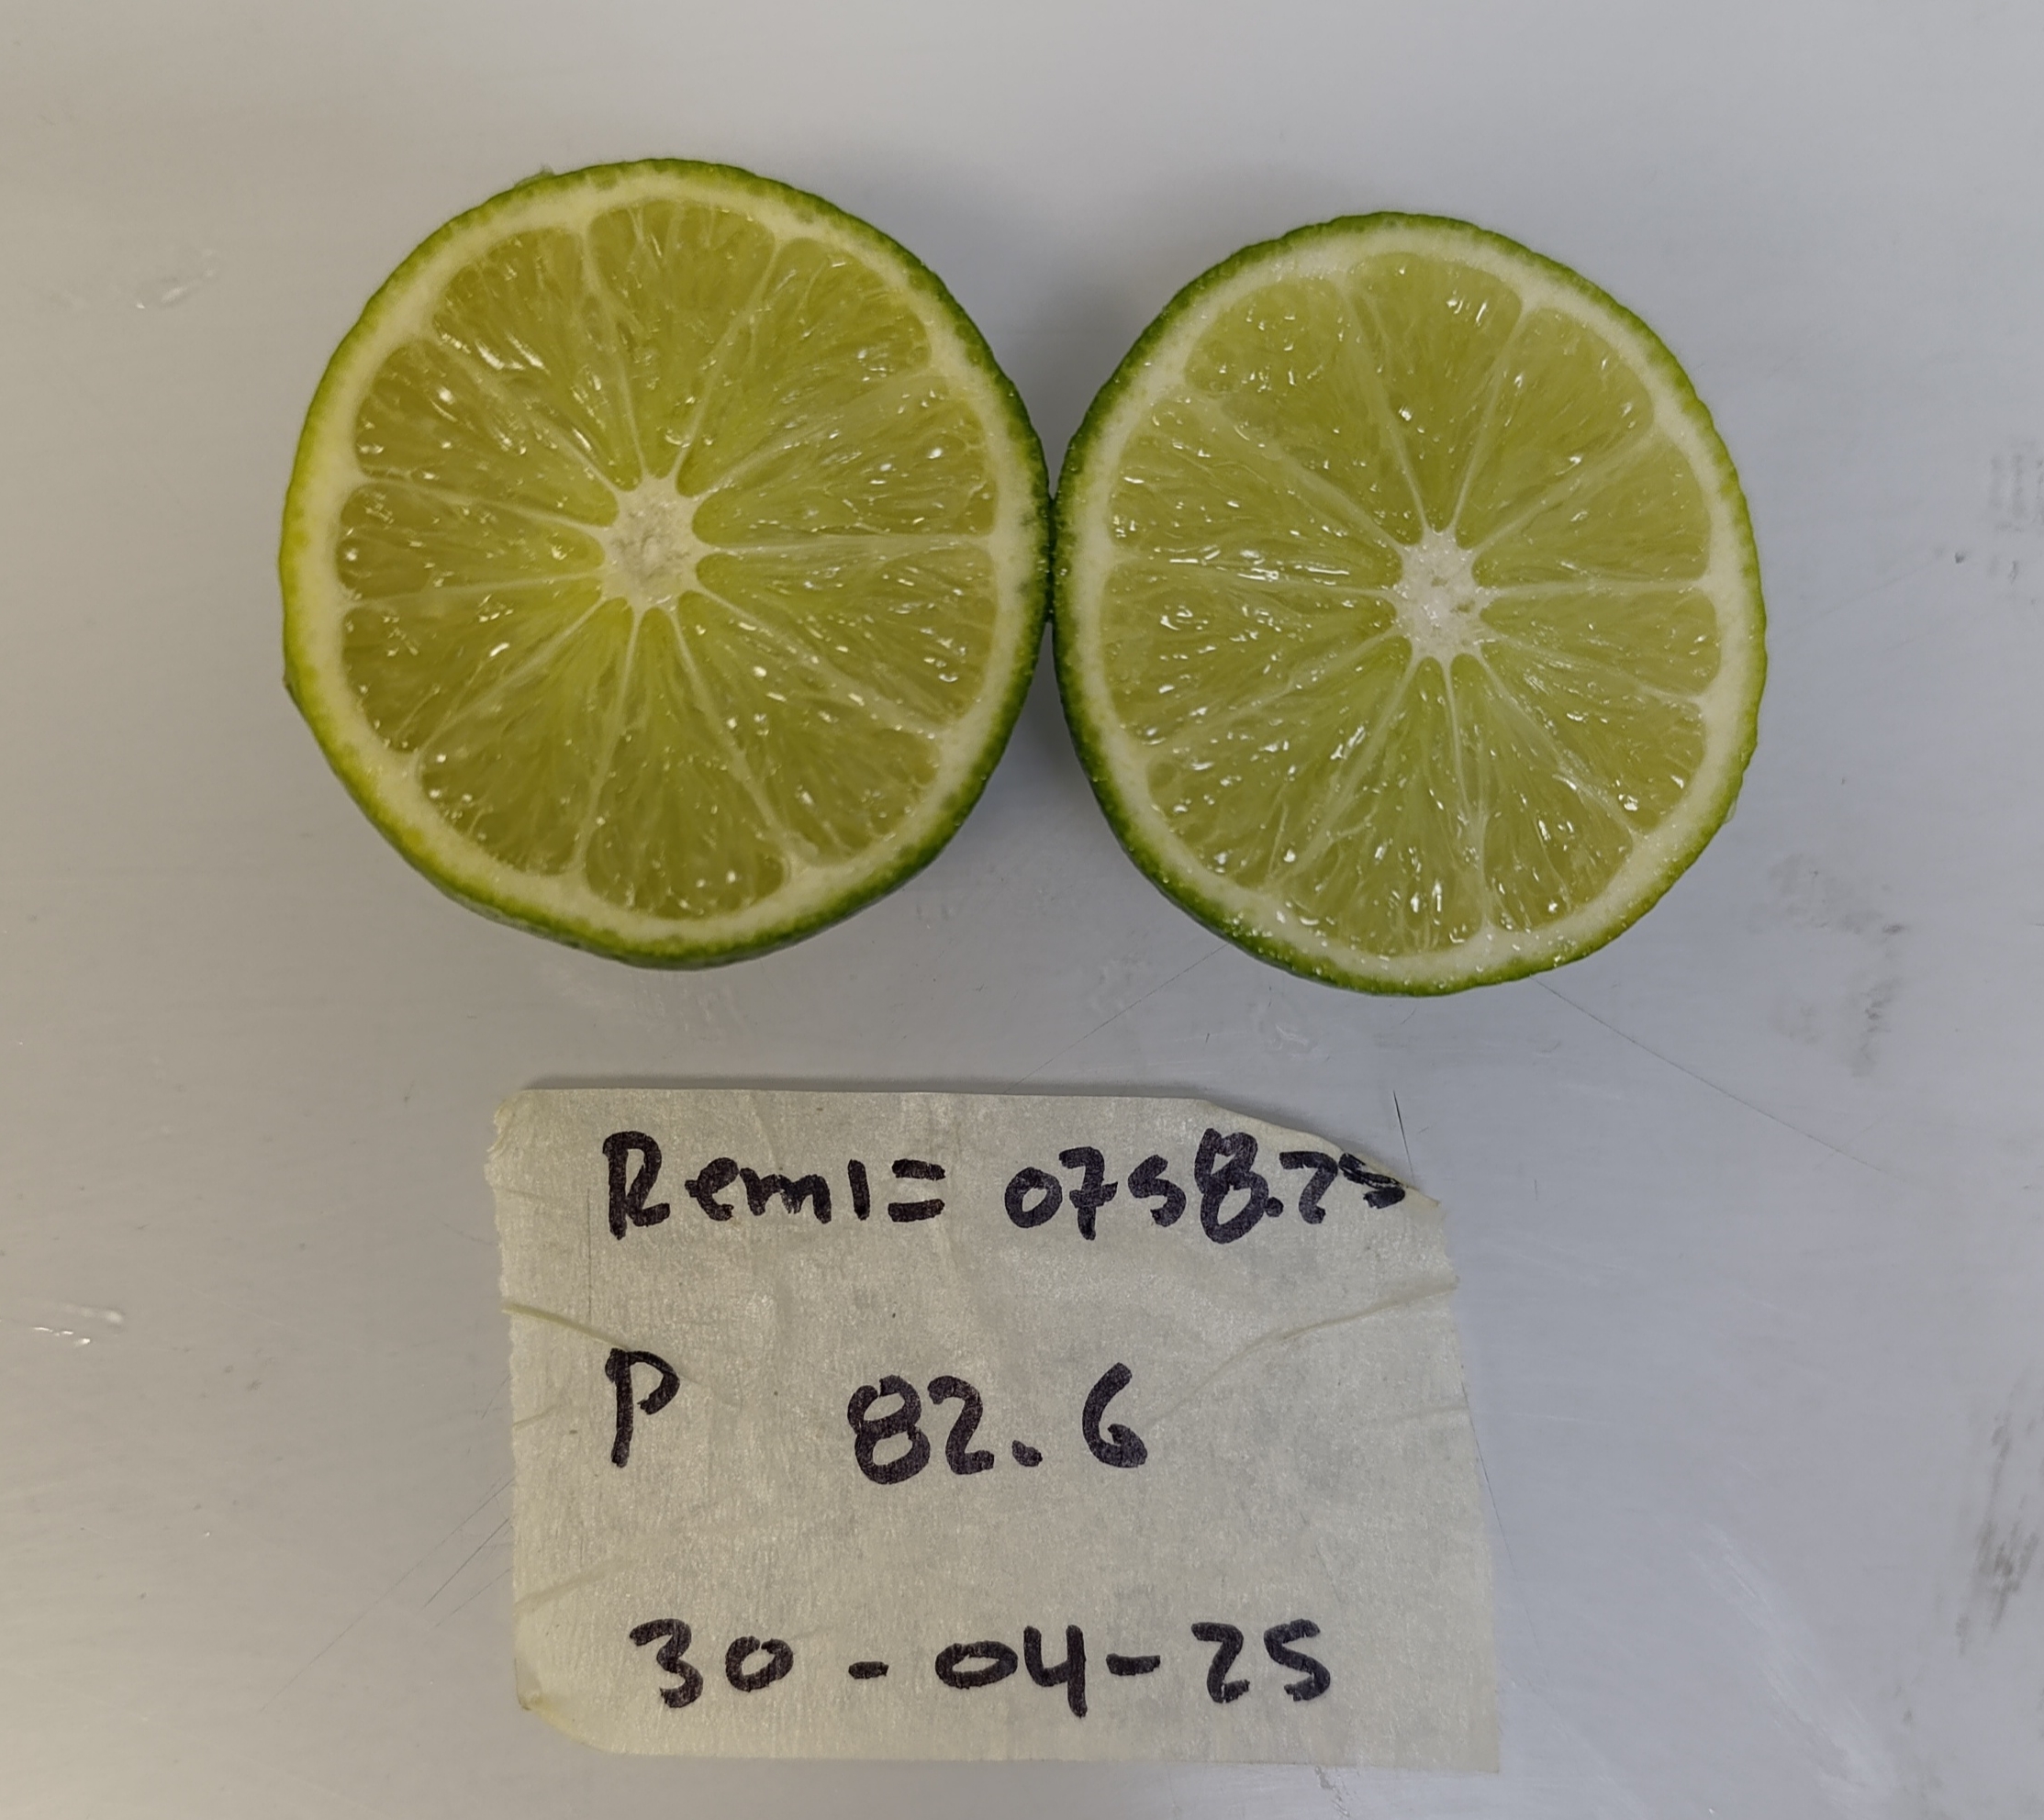 Rem1= 0758.25
P 82.6
30-04-25